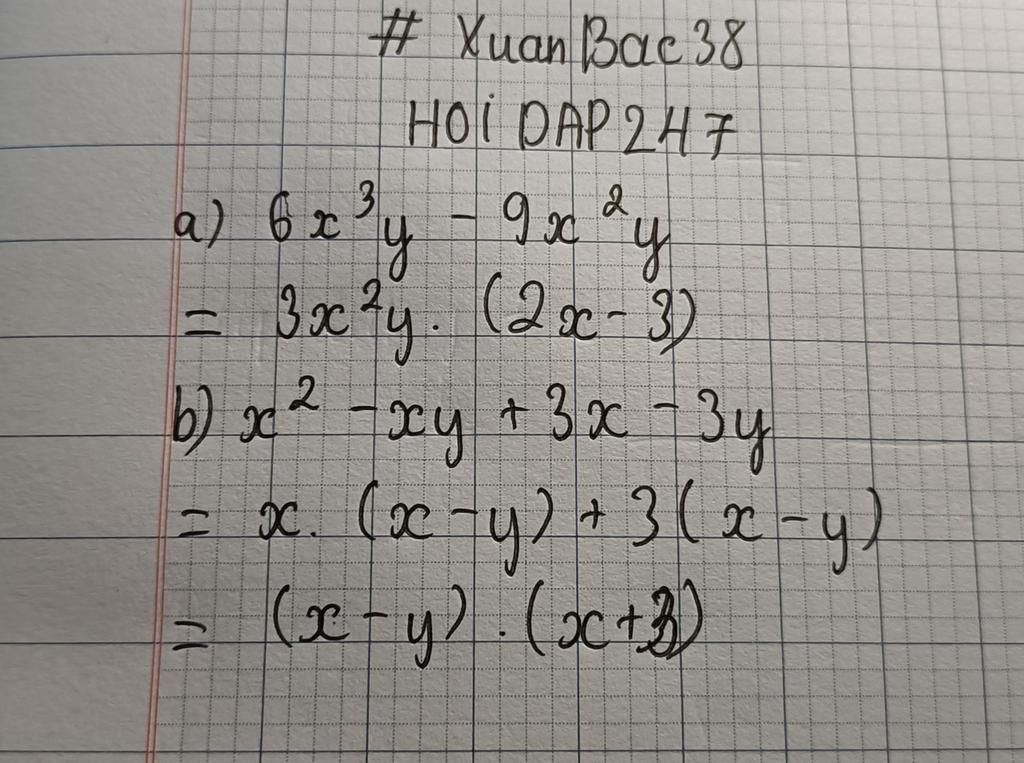 # XuanBac38
HOi DAP 247
a) 6x³y - 9x²y
= 3x²y. (2x-3)
b) x² - xy + 3x - 3y
= x. (x-y) + 3(x-y)
= (x-y) . (x+3)